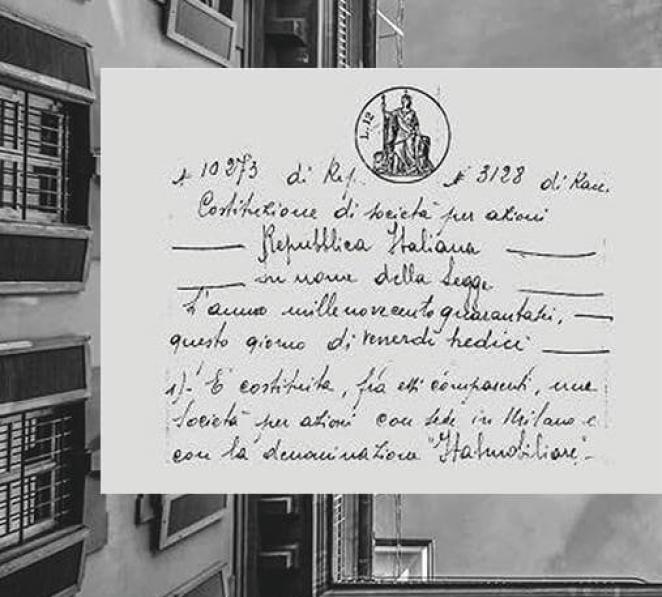 L. 12
N 10273 di Rep. N 3128 di Racc.
Costituzione di società per azioni
Repubblica Italiana
in nome della Legge
L'anno millenovecentoquarantasei,
questo giorno di venerdì tredici
1)- È costituita, fra essi comparenti, una
società per azioni con sede in Milano e
con la denominazione "Italmobiliare"-